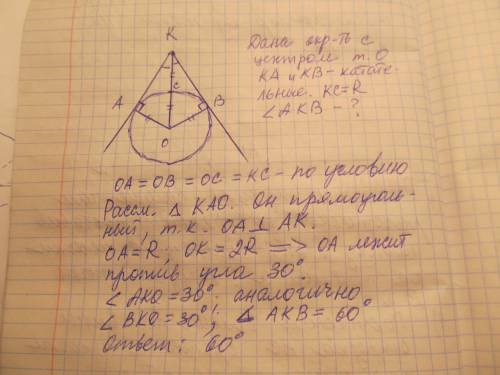 K
C
A
B
O
Дана окр-ть с
центром т. О
KA и KB - касате
льные. KC=R
∠AKB - ?
OA = OB = OC = KC - по условию
Рассм. △ KAO. Он прямоуголь-
ный, т.к. OA⊥AK.
OA=R, OK=2R => OA лежит
против угла 30°.
∠AKO=30°. аналогично
∠BKO=30°. ∠AKB = 60°
Ответ: 60°